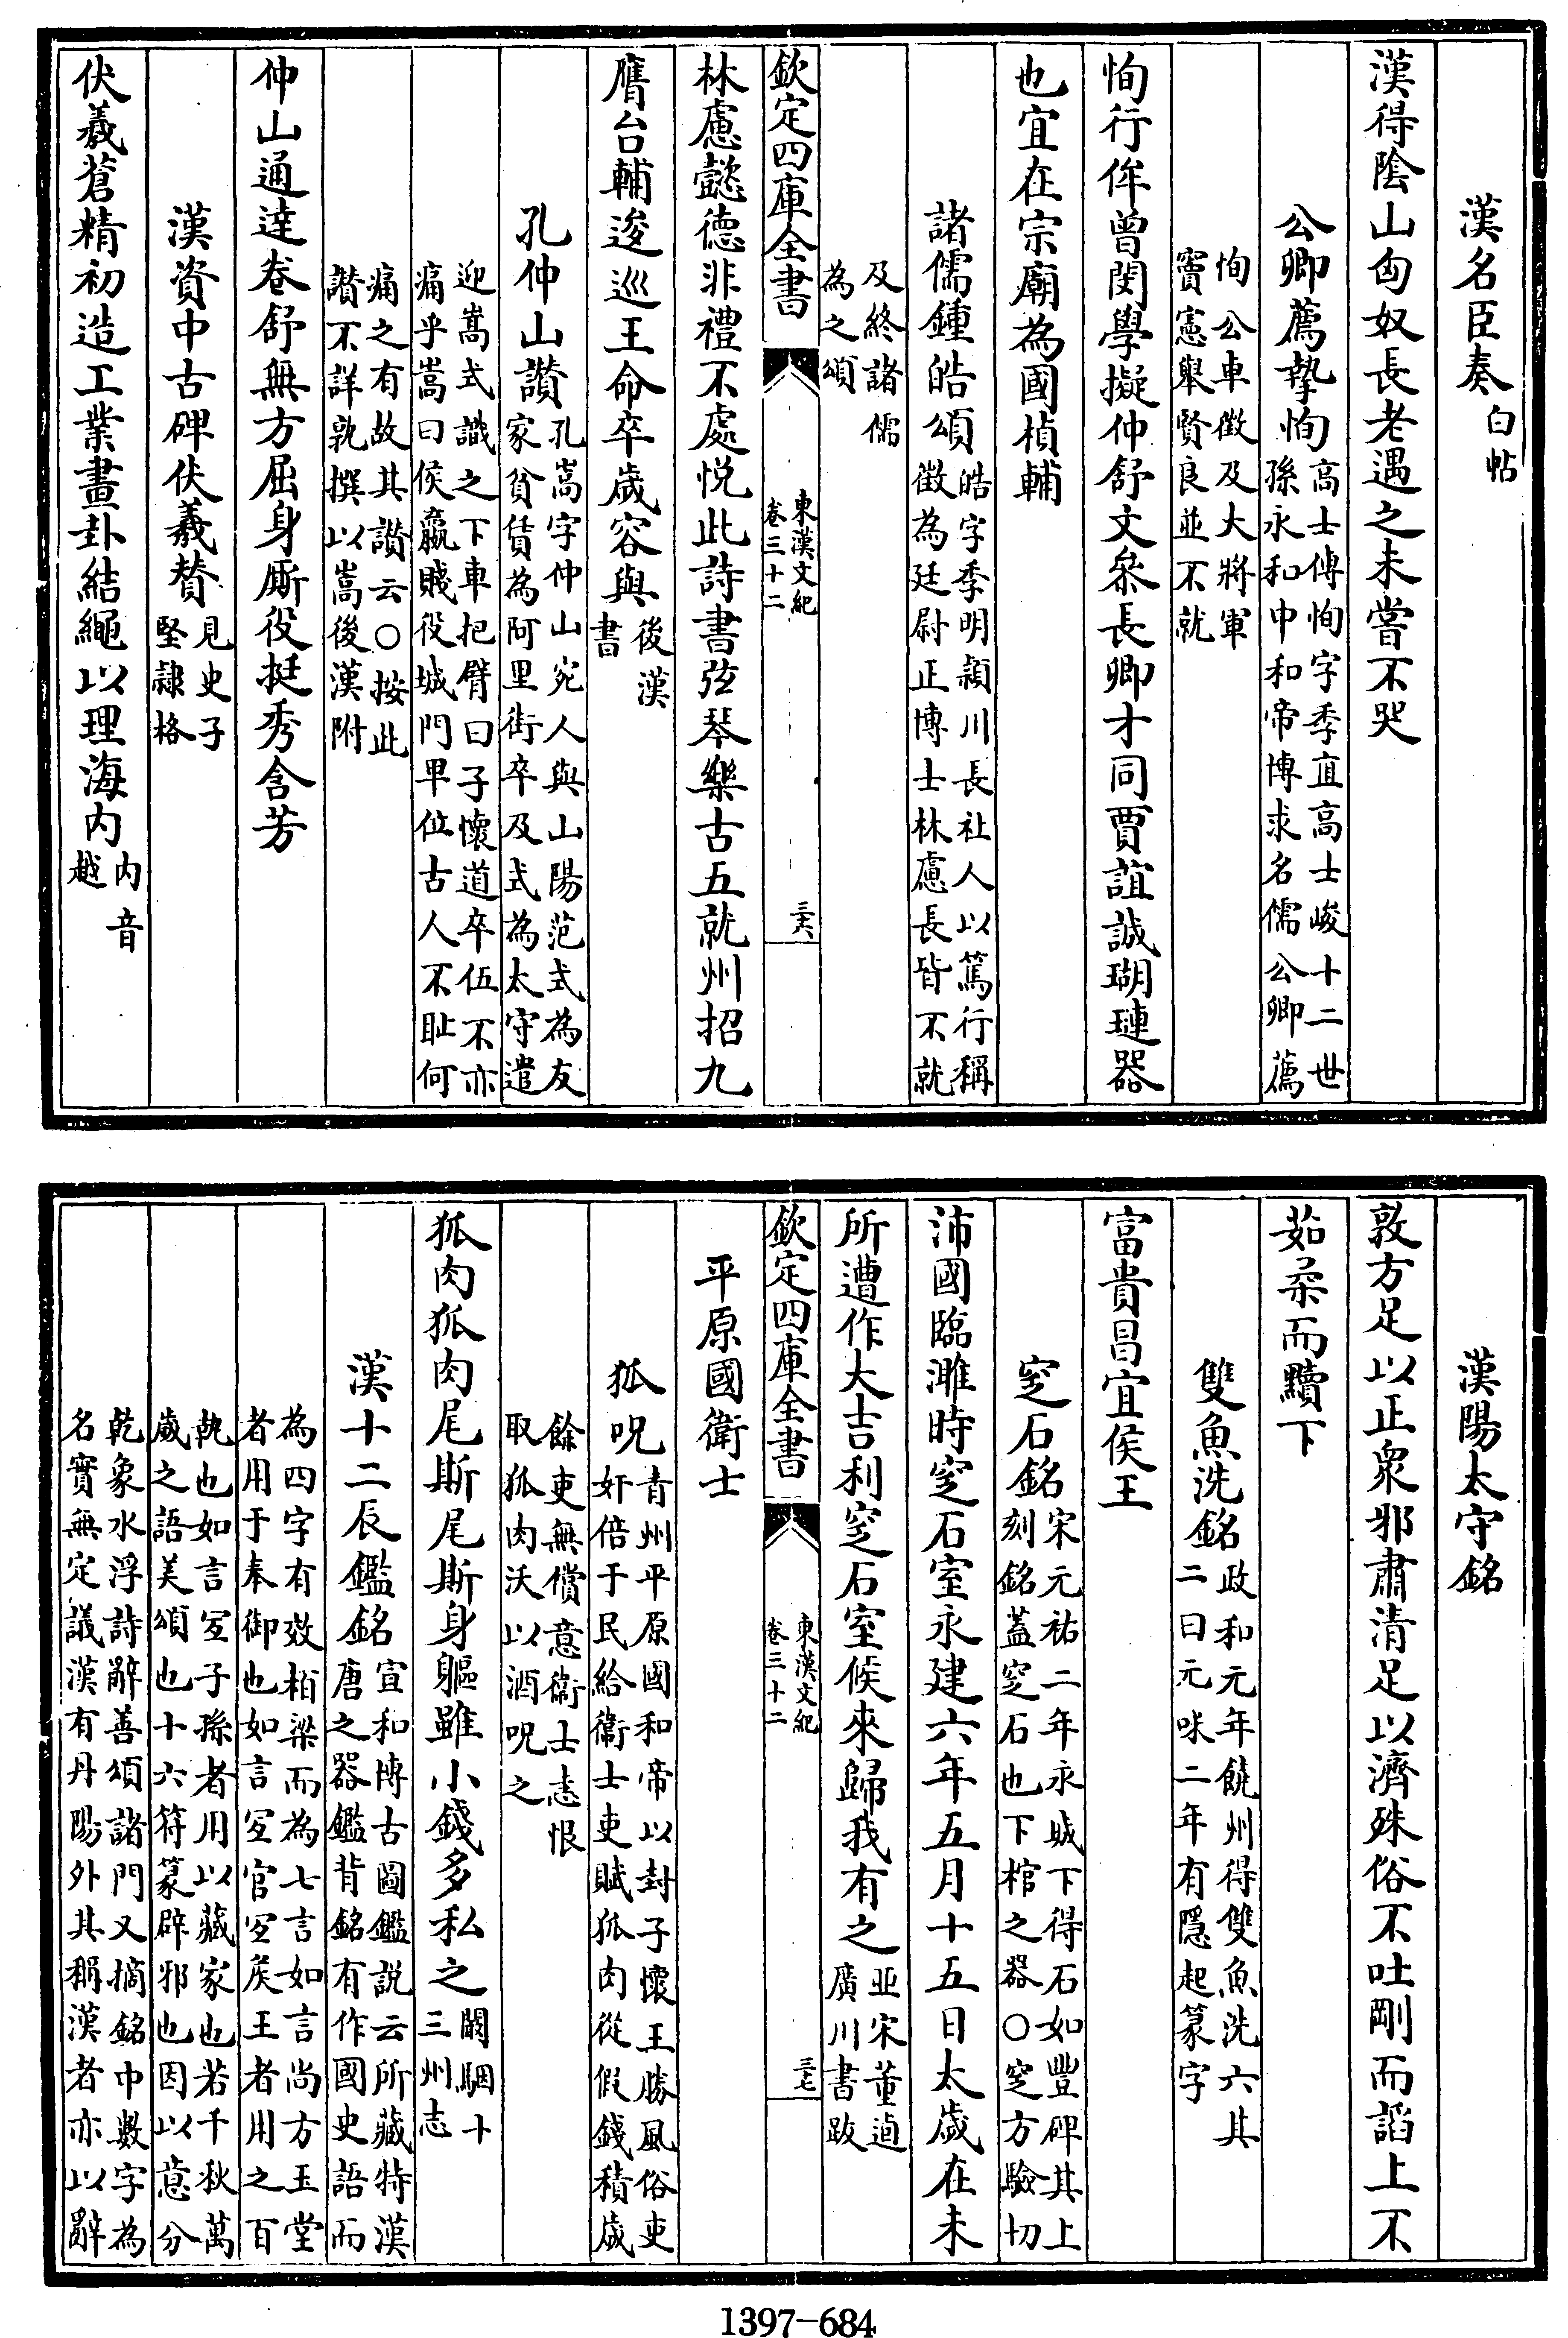 漢名臣奏白帖
漢得陰山匈奴長老遇之未嘗不哭
公卿薦摯恂高士傳恂字季直高士峻十二世孫永和中和帝博求名儒公卿薦
恂公車徵及大將軍竇憲舉賢良並不就
恂行侔曾閔學擬仲舒文參長卿才同賈誼誠瑚璉器
也宜在宗廟為國楨輔
諸儒鍾皓頌皓字季明潁川長社人以篤行稱徵為廷尉正博士林慮長皆不就
及終諸儒為之頌
欽定四庫全書 東漢文紀卷三十二 三六
林慮懿德非禮不處悅此詩書弦琴樂古五就州招九
膺台輔逡巡王命卒歲容與後漢書
孔仲山讚孔嵩字仲山宛人與山陽范式為友家貧賃為阿里街卒及式為太守遣
迎嵩式識之下車把臂曰子懷道卒伍不亦痛乎嵩曰侯嬴賤役城門卑位古人不恥何
痛之有故其讚云○按此讚不詳孰撰以嵩後漢附
仲山通達卷舒無方屈身厮役挺秀含芳
漢資中古碑伏羲贊見史子堅隷格
伏羲蒼精初造工業畫卦結繩以理海内内音越
漢陽太守銘
敦方足以正衆邪肅清足以濟殊俗不吐剛而謟上不
茹柔而黷下
雙魚洗銘政和元年饒州得雙魚洗六其二曰元咊二年有隱起篆字
富貴昌宜侯王
窆石銘宋元祐二年永城下得石如豐碑其上刻銘蓋窆石也下棺之器○窆方驗切
沛國臨濉時窆石室永建六年五月十五日太歲在未
所遭作大吉利窆石室候來歸我有之並宋董逌廣川書跋
欽定四庫全書 東漢文紀卷三十二 三七
平原國衛士
狐呪青州平原國和帝以封子懷王勝風俗吏奸倍于民給衛士吏賦狐肉從假錢積歲
餘吏無償意衛士恚恨取狐肉沃以酒呪之
狐肉狐肉尾斯尾斯身軀雖小錢多私之闞駰十三州志
漢十二辰鑑銘宣和博古圖鑑説云所藏特漢唐之器鑑背銘有作國史語而
為四字有效栢梁而為七言如言尚方玉堂者用于奉御也如言宐官宐矦王者用之百
執也如言宐子孫者用以藏家也若千秋萬歲之語美頌也十六符篆辟邪也因以意分
乾象水浮詩辭善頌諸門又摘銘中數字為名實無定議漢有丹陽外其稱漢者亦以辭
1397-684